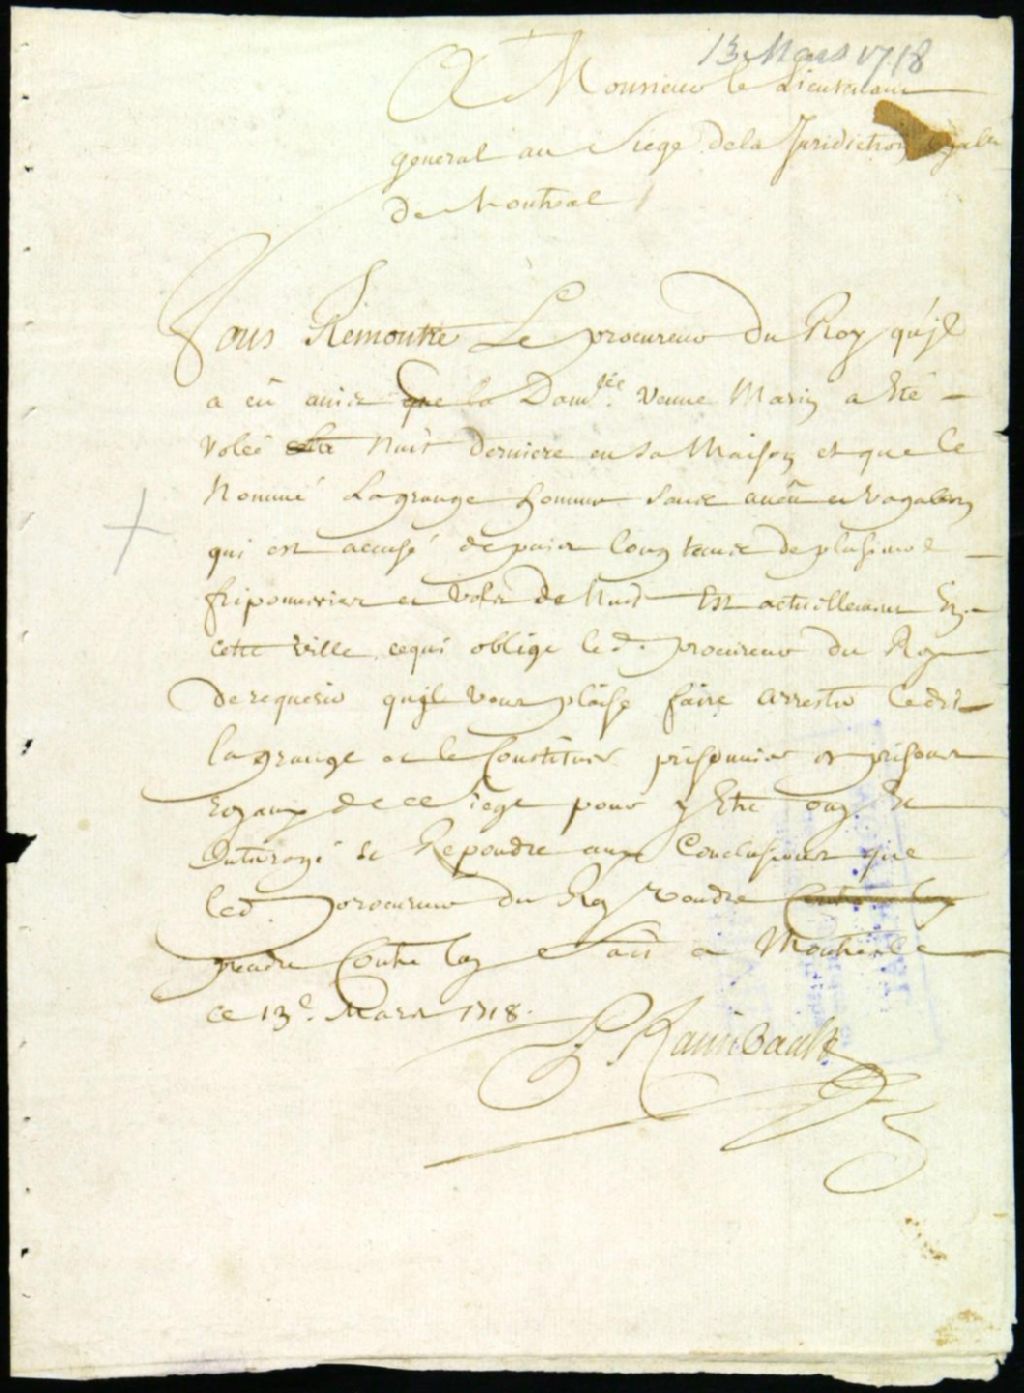 13 Mars 1718
A Monsieur le Lieutenant
general au Siege de la Juridiction Royalle
de Montreal
Vous Remontre Le procureur du Roy qu'jl
a eû avis que la Dam.lle Veuve Marin a Eté
Volée cette Nuit derniere en sa Maison et que le
Nommé Lagrange homme sans aueû et vagabon
qui est accusé depuis longtems de plusieurs
friponneries et vols de Nuit Est actuellement En
cette ville ce qui oblige led. procureur du Roy
de requerir qu'jl vous plaise faire arrester ledit
lagrange et le Constituer prisonnier es prisons
Royaux de ce siege pour y Etre ouy Et
Interrogé et Repondre aux Conclusions que
led. procureur du Roy voudra
prendre Contre luy fait a Montreal
ce 13e Mars 1718.
F Raimbault